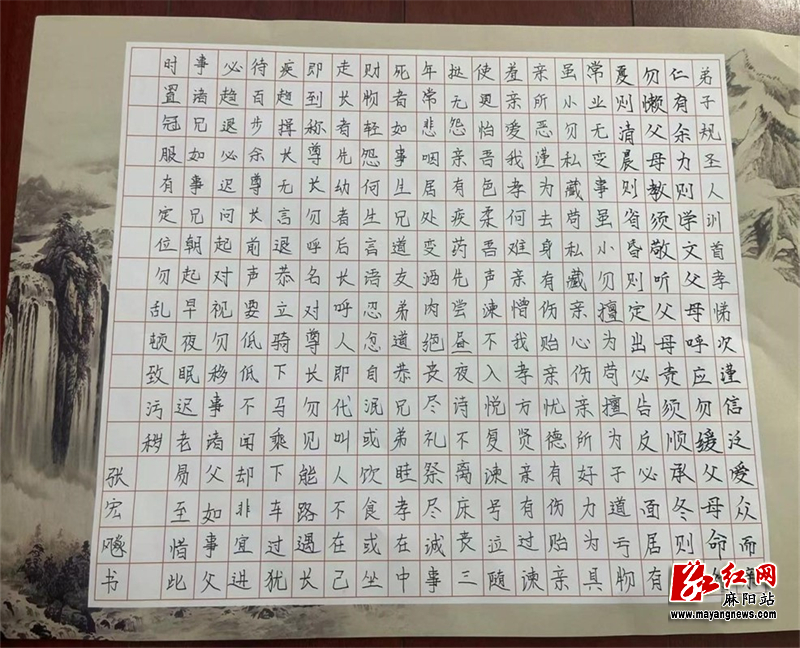 弟子规圣人训首孝悌次谨信泛爱众而亲
仁有余力则学文父母呼应勿缓父母命
勿懒父母教须敬听父母责须顺承冬则
夏则清晨则省昏则定出必告反必面居有
常业无变事虽小勿擅为苟擅为子道亏物
虽小勿私藏苟私藏亲心伤亲所好力为具
亲所恶谨为去身有伤贻亲忧德有伤贻亲
羞亲爱我孝何难亲憎我孝方贤亲有过谏
使更怡吾色柔吾声谏不入悦复谏号泣随
挞无怨亲有疾药先尝昼夜诗不离床丧三
年常悲咽居处变酒肉绝丧尽礼祭尽诚事
死者如事生兄道友弟道恭兄弟睦孝在中
财物轻怨何生言语忍忿自泯或饮食或坐
走长者先幼者后长呼人即代叫人不在己
即到称尊长勿呼名对尊长勿见能路遇长
疾趋揖长无言退恭立骑下马乘下车过犹
待百步余尊长前声要低低不闻却非宜进
必趋退必迟问起对视勿移事诸父如事父
事诸兄如事兄朝起早夜眠迟老易至惜此
时置冠服有定位勿乱顿致污秽
张宏书
红网
麻阳站
www.mayangnews.com